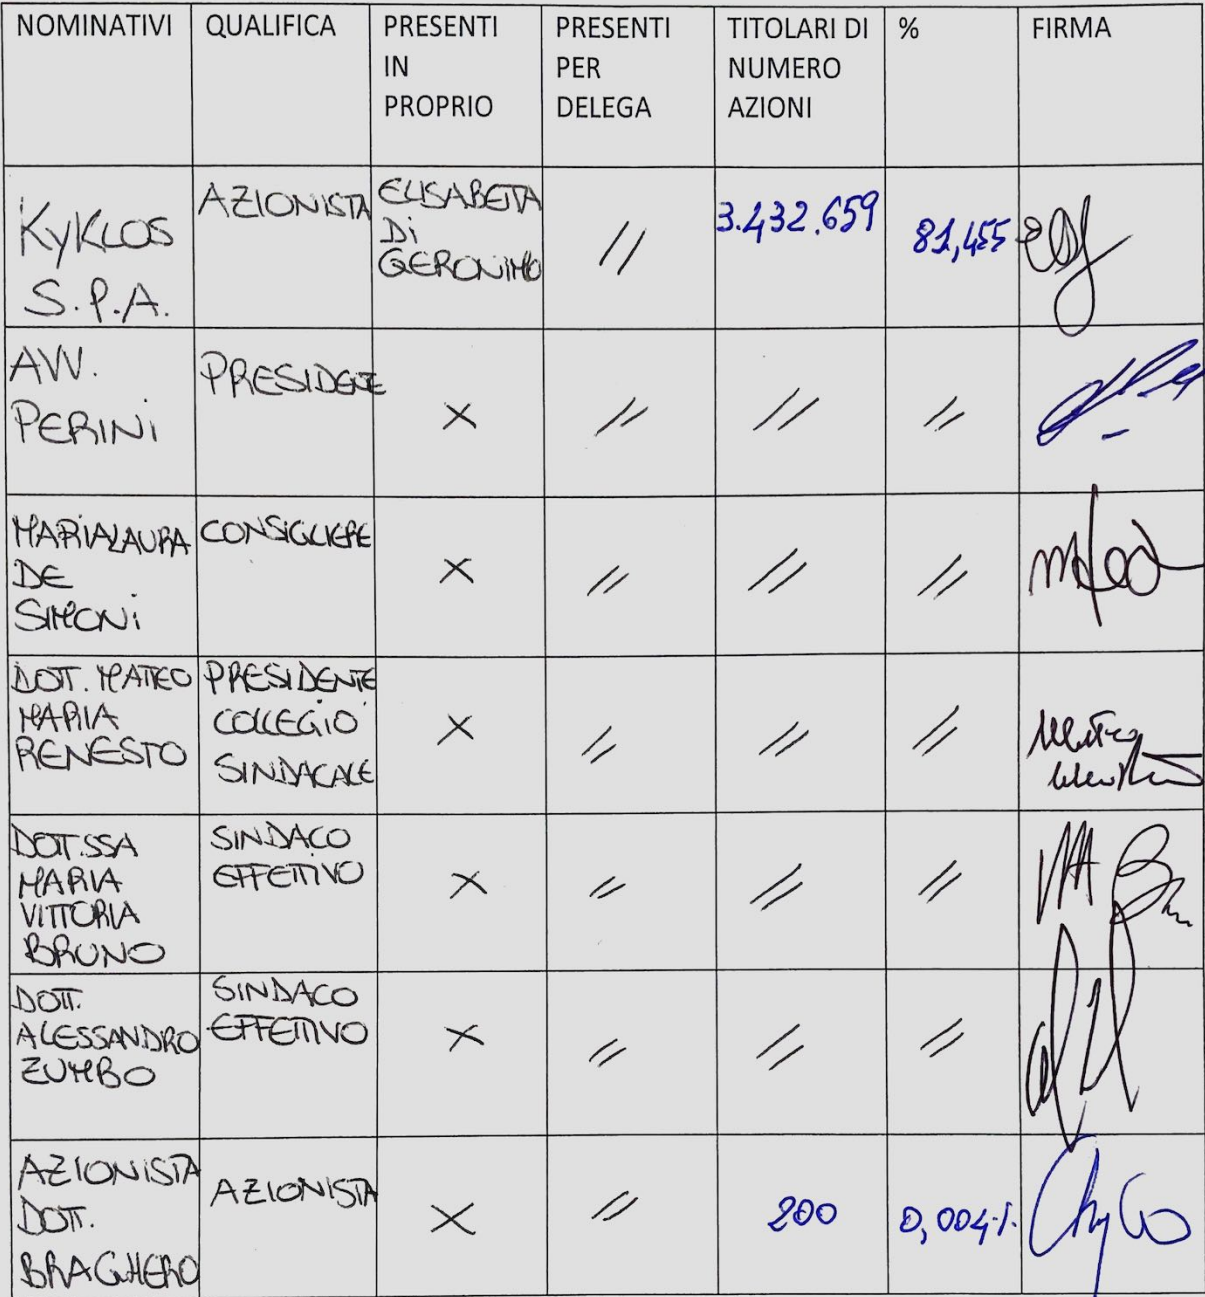 NOMINATIVI QUALIFICA PRESENTI IN PROPRIO PRESENTI PER DELEGA TITOLARI DI NUMERO AZIONI % FIRMA
KYKLOS S.P.A. AZIONISTA ELISABETTA Di GERONIMO // 3.432.659 81,455
AVV. PERINI PRESIDENTE X // // //
MARIALAURA DE SIMONI CONSIGLIERE X // // //
DOTT. MATTEO MARIA RENESTO PRESIDENTE COLLEGIO SINDACALE X // // //
DOTT.SSA MARIA VITTORIA BRUNO SINDACO EFFETTIVO X // // //
DOTT. ALESSANDRO ZUMBO SINDACO EFFETTIVO X // // //
AZIONISTA DOTT. BRAGHERO AZIONISTA X // 200 0,004%